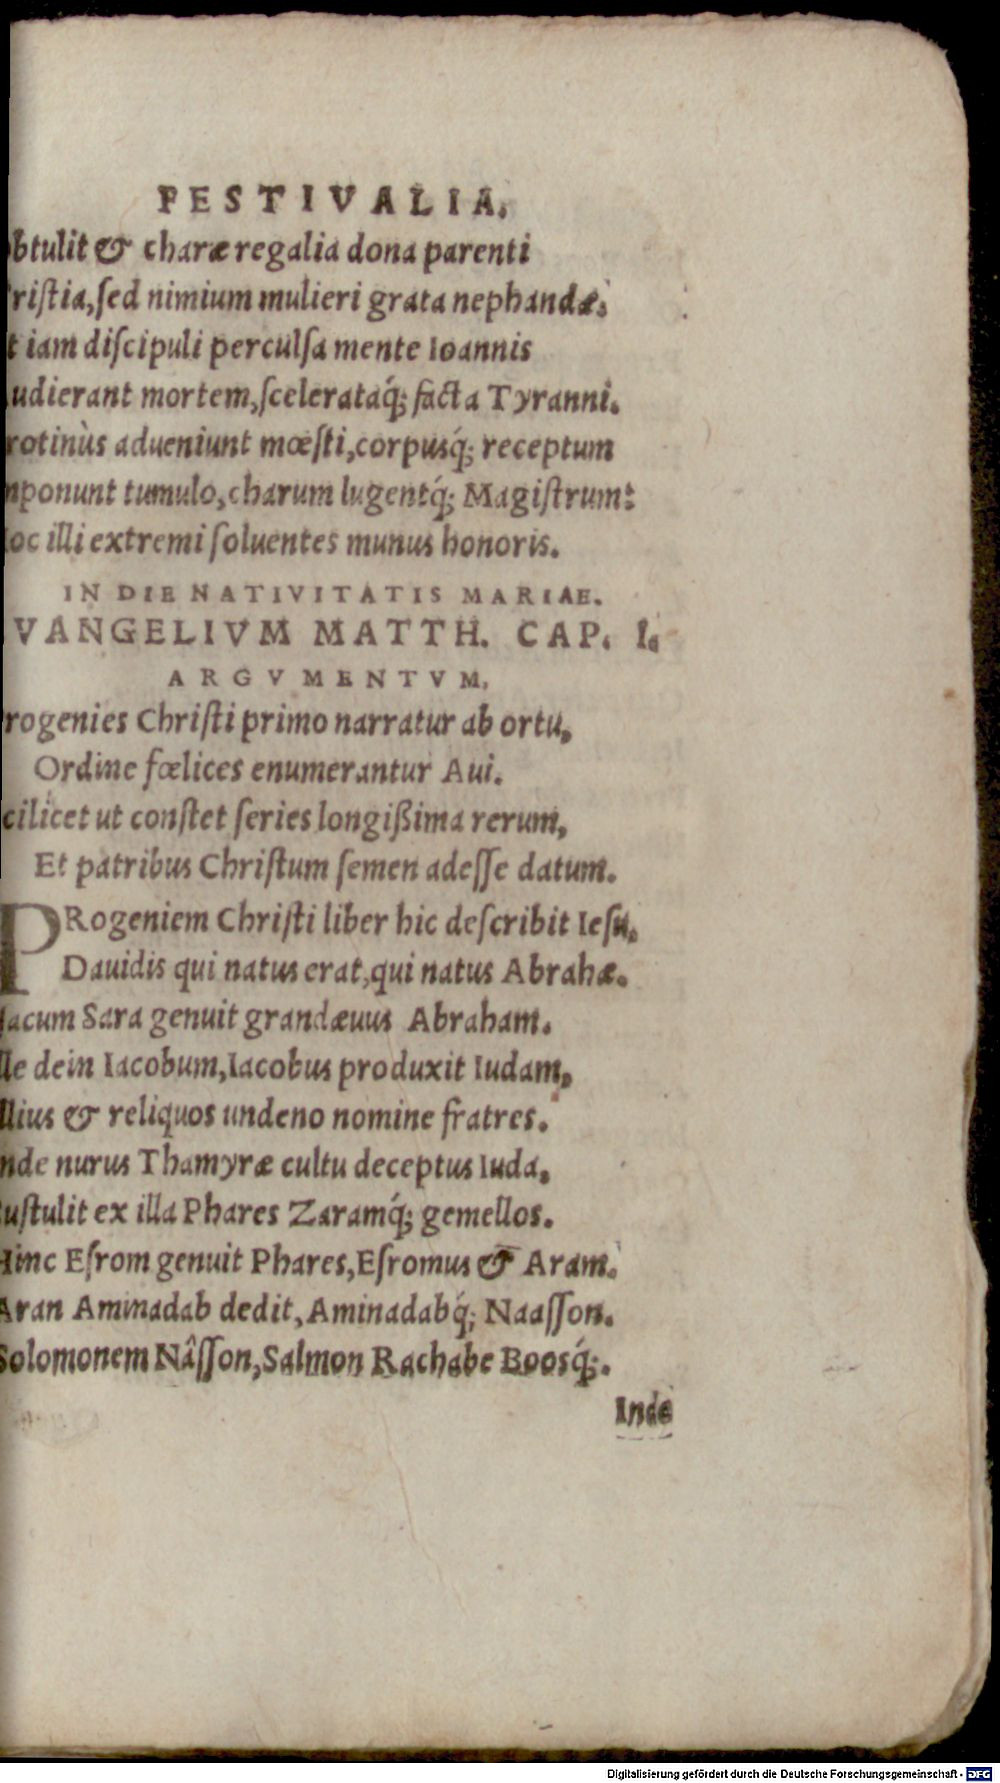 FESTIVALIA.
btulit & charæ regalia dona parenti
riſtia, ſed nimium mulieri grata nephandæ.
t iam diſcipuli perculſa mente Ioannis
udierant mortem, ſcelerataq́; facta Tyranni.
rotinùs adueniunt mœſti, corpusq́; receptum
mponunt tumulo, charum lugentq́; Magiſtrum:
oc illi extremi ſoluentes munus honoris.
IN DIE NATIVITATIS MARIAE.
VANGELIVM MATTH. CAP. I.
ARGVMENTVM.
rogenies Chriſti primo narratur ab ortu,
Ordine fœlices enumerantur Aui.
cilicet ut conſtet ſeries longißima rerum,
Et patribus Chriſtum ſemen adeſſe datum.
PRogeniem Chriſti liber hic deſcribit Ieſu,
Dauidis qui natus erat, qui natus Abrahæ.
ſacum Sara genuit grandæuus Abraham.
lle dein Iacobum, Iacobus produxit Iudam,
llius & reliquos undeno nomine fratres.
nde nurus Thamyræ cultu deceptus Iuda,
uſtulit ex illa Phares Zaramq́; gemellos.
Hinc Eſrom genuit Phares, Eſromus & Aram.
Aran Aminadab dedit, Aminadabq́; Naaſſon.
Solomonem Nâſſon, Salmon Rachabe Boosq́;.
Inde
Digitalisierung gefördert durch die Deutsche Forschungsgemeinschaft - DFG